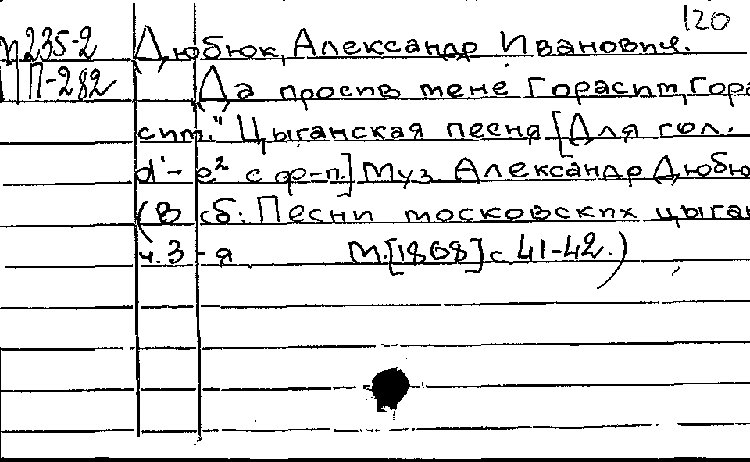 120
235-2 Дюбюк, Александр Иванович.
П-282 Да проспв мене Горасит, Гора
сит." Цыганская песня. [Для гол.
d'- e² с ф-п.] Муз. Александр Дюбю
(В сб: Песни московских цыган
ч. 3 - я М. [1868] с 41-42.)